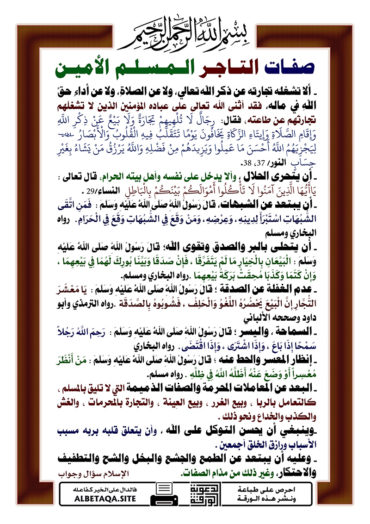 بسم الله الرحمن الرحيم
صفات التاجر المسلم الأمين
ـ ألا تشغله تجارته عن ذكر الله تعالى، ولا عن الصلاة، ولا عن أداء حق
الله في ماله. فقد أثنى الله تعالى على عباده المؤمنين الذين لا تشغلهم
تجارتهم عن طاعته، فقال: رِجَالٌ لَّا تُلْهِيهِمْ تِجَارَةٌ وَلَا بَيْعٌ عَن ذِكْرِ اللَّهِ
وَإِقَامِ الصَّلَاةِ وَإِيتَاءِ الزَّكَاةِ يَخَافُونَ يَوْمًا تَتَقَلَّبُ فِيهِ الْقُلُوبُ وَالْأَبْصَارُ
لِيَجْزِيَهُمُ اللَّهُ أَحْسَنَ مَا عَمِلُوا وَيَزِيدَهُم مِّن فَضْلِهِ وَاللَّهُ يَرْزُقُ مَن يَشَاءُ بِغَيْرِ
حِسَابٍ النور/ 37، 38.
ـ أن يتحرى الحلال ، وألا يدخل على نفسه وأهل بيته الحرام. قال تعالى :
يَاأَيُّهَا الَّذِينَ آمَنُوا لَا تَأْكُلُوا أَمْوَالَكُمْ بَيْنَكُمْ بِالْبَاطِلِ النساء/29 .
ـ أن يبتعد عن الشبهات، قال رسول الله صلى الله عليه وسلم : فَمَنِ اتَّقَى
الشُّبُهَاتِ اسْتَبْرَأَ لِدِينِهِ ، وَعِرْضِهِ، وَمَنْ وَقَعَ فِي الشُّبُهَاتِ وَقَعَ فِي الْحَرَامِ. رواه
البخاري ومسلم
ـ أن يتحلى بالبر والصدق وتقوى الله؛ قال رسول الله صلى الله عليه
وسلم : الْبَيِّعَانِ بِالْخِيَارِ مَا لَمْ يَتَفَرَّقَا ، فَإِنْ صَدَقَا وَبَيَّنَا بُورِكَ لَهُمَا فِي بَيْعِهِمَا ،
وَإِنْ كَتَمَا وَكَذَبَا مُحِقَتْ بَرَكَةُ بَيْعِهِمَا .رواه البخاري ومسلم.
ـ عدم الغفلة عن الصدقة ؛ قال رسول الله صلى الله عليه وسلم : يَا مَعْشَرَ
التُّجَّارِ إِنَّ الْبَيْعَ يَحْضُرُهُ اللَّغْوُ وَالْحَلِفُ ، فَشُوبُوهُ بِالصَّدَقَةِ .رواه الترمذي وأبو
داود وصححه الألباني
ـ السماحة ، واليسر ؛ قال رسول الله صلى الله عليه وسلم : رَحِمَ اللَّهُ رَجُلًا
سَمْحًا إِذَا بَاعَ ، وَإِذَا اشْتَرَى ، وَإِذَا اقْتَضَى . رواه البخاري
ـ إنظار المعسر والحط عنه ؛ قال رسول الله صلى الله عليه وسلم : مَنْ أَنْظَرَ
مُعْسِرًا أَوْ وَضَعَ عَنْهُ أَظَلَّهُ اللَّهُ فِي ظِلِّهِ . رواه مسلم.
ـ البعد عن المعاملات المحرمة والصفات الذميمة التي لا تليق بالمسلم ،
كالتعامل بالربا ، وبيع الغرر ، وبيع العينة ، والتجارة بالمحرمات ، والغش
والكذب والخداع ونحو ذلك .
ـوينبغي أن يحسن التوكل على الله ، وأن يتعلق قلبه بربه مسبب
الأسباب ورازق الخلق أجمعين .
ـ وعليه أن يبتعد عن الطمع والجشع والبخل والشح والتطفيف
والاحتكار، وغير ذلك من مذام الصفات. الإسلام سؤال وجواب
احرص على طباعة
ونشر هذه الورقة
الورقة الدعوية
فالدال على الخير كفاعله
ALBETAQA.SITE